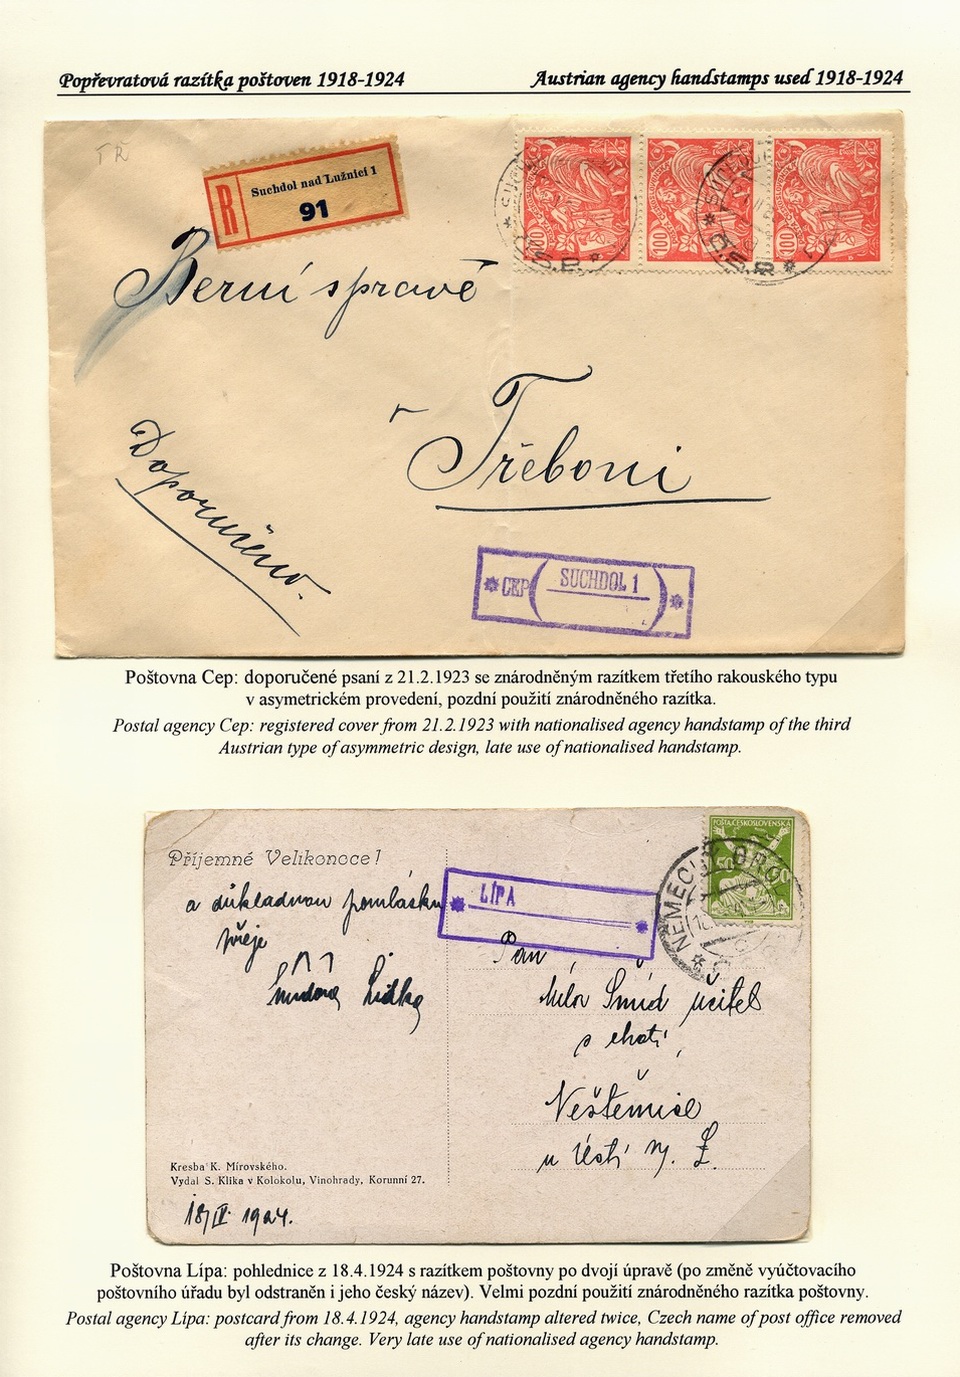 Popřevratová razítka poštoven 1918-1924
Austrian agency handstamps used 1918-1924
TŘ
R
Suchdol nad Lužnicí 1
91
100
100
100
Č.S.R.
Č.S.R.
Berní správě
v
Třeboni
Doporučeno.
CEP
SUCHDOL 1
Poštovna Cep: doporučené psaní z 21.2.1923 se znárodněným razítkem třetího rakouského typu
v asymetrickém provedení, pozdní použití znárodněného razítka.
Postal agency Cep: registered cover from 21.2.1923 with nationalised agency handstamp of the third
Austrian type of asymmetric design, late use of nationalised handstamp.
POŠTA ČESKOSLOVENSKÁ
50
NĚMECKÝ BROD
Příjemné Velikonoce!
a důkladnou pomlásku
přeje
Lidka
LÍPA
Pan
Milov Šmíd učitel
s chotí
Neštěmice
u Ústí n. L.
Kresba K. Mírovského.
Vydal S. Klika v Kolokolu, Vinohrady, Korunní 27.
18/IV 1924.
Poštovna Lípa: pohlednice z 18.4.1924 s razítkem poštovny po dvojí úpravě (po změně vyúčtovacího
poštovního úřadu byl odstraněn i jeho český název). Velmi pozdní použití znárodněného razítka poštovny.
Postal agency Lípa: postcard from 18.4.1924, agency handstamp altered twice, Czech name of post office removed
after its change. Very late use of nationalised agency handstamp.